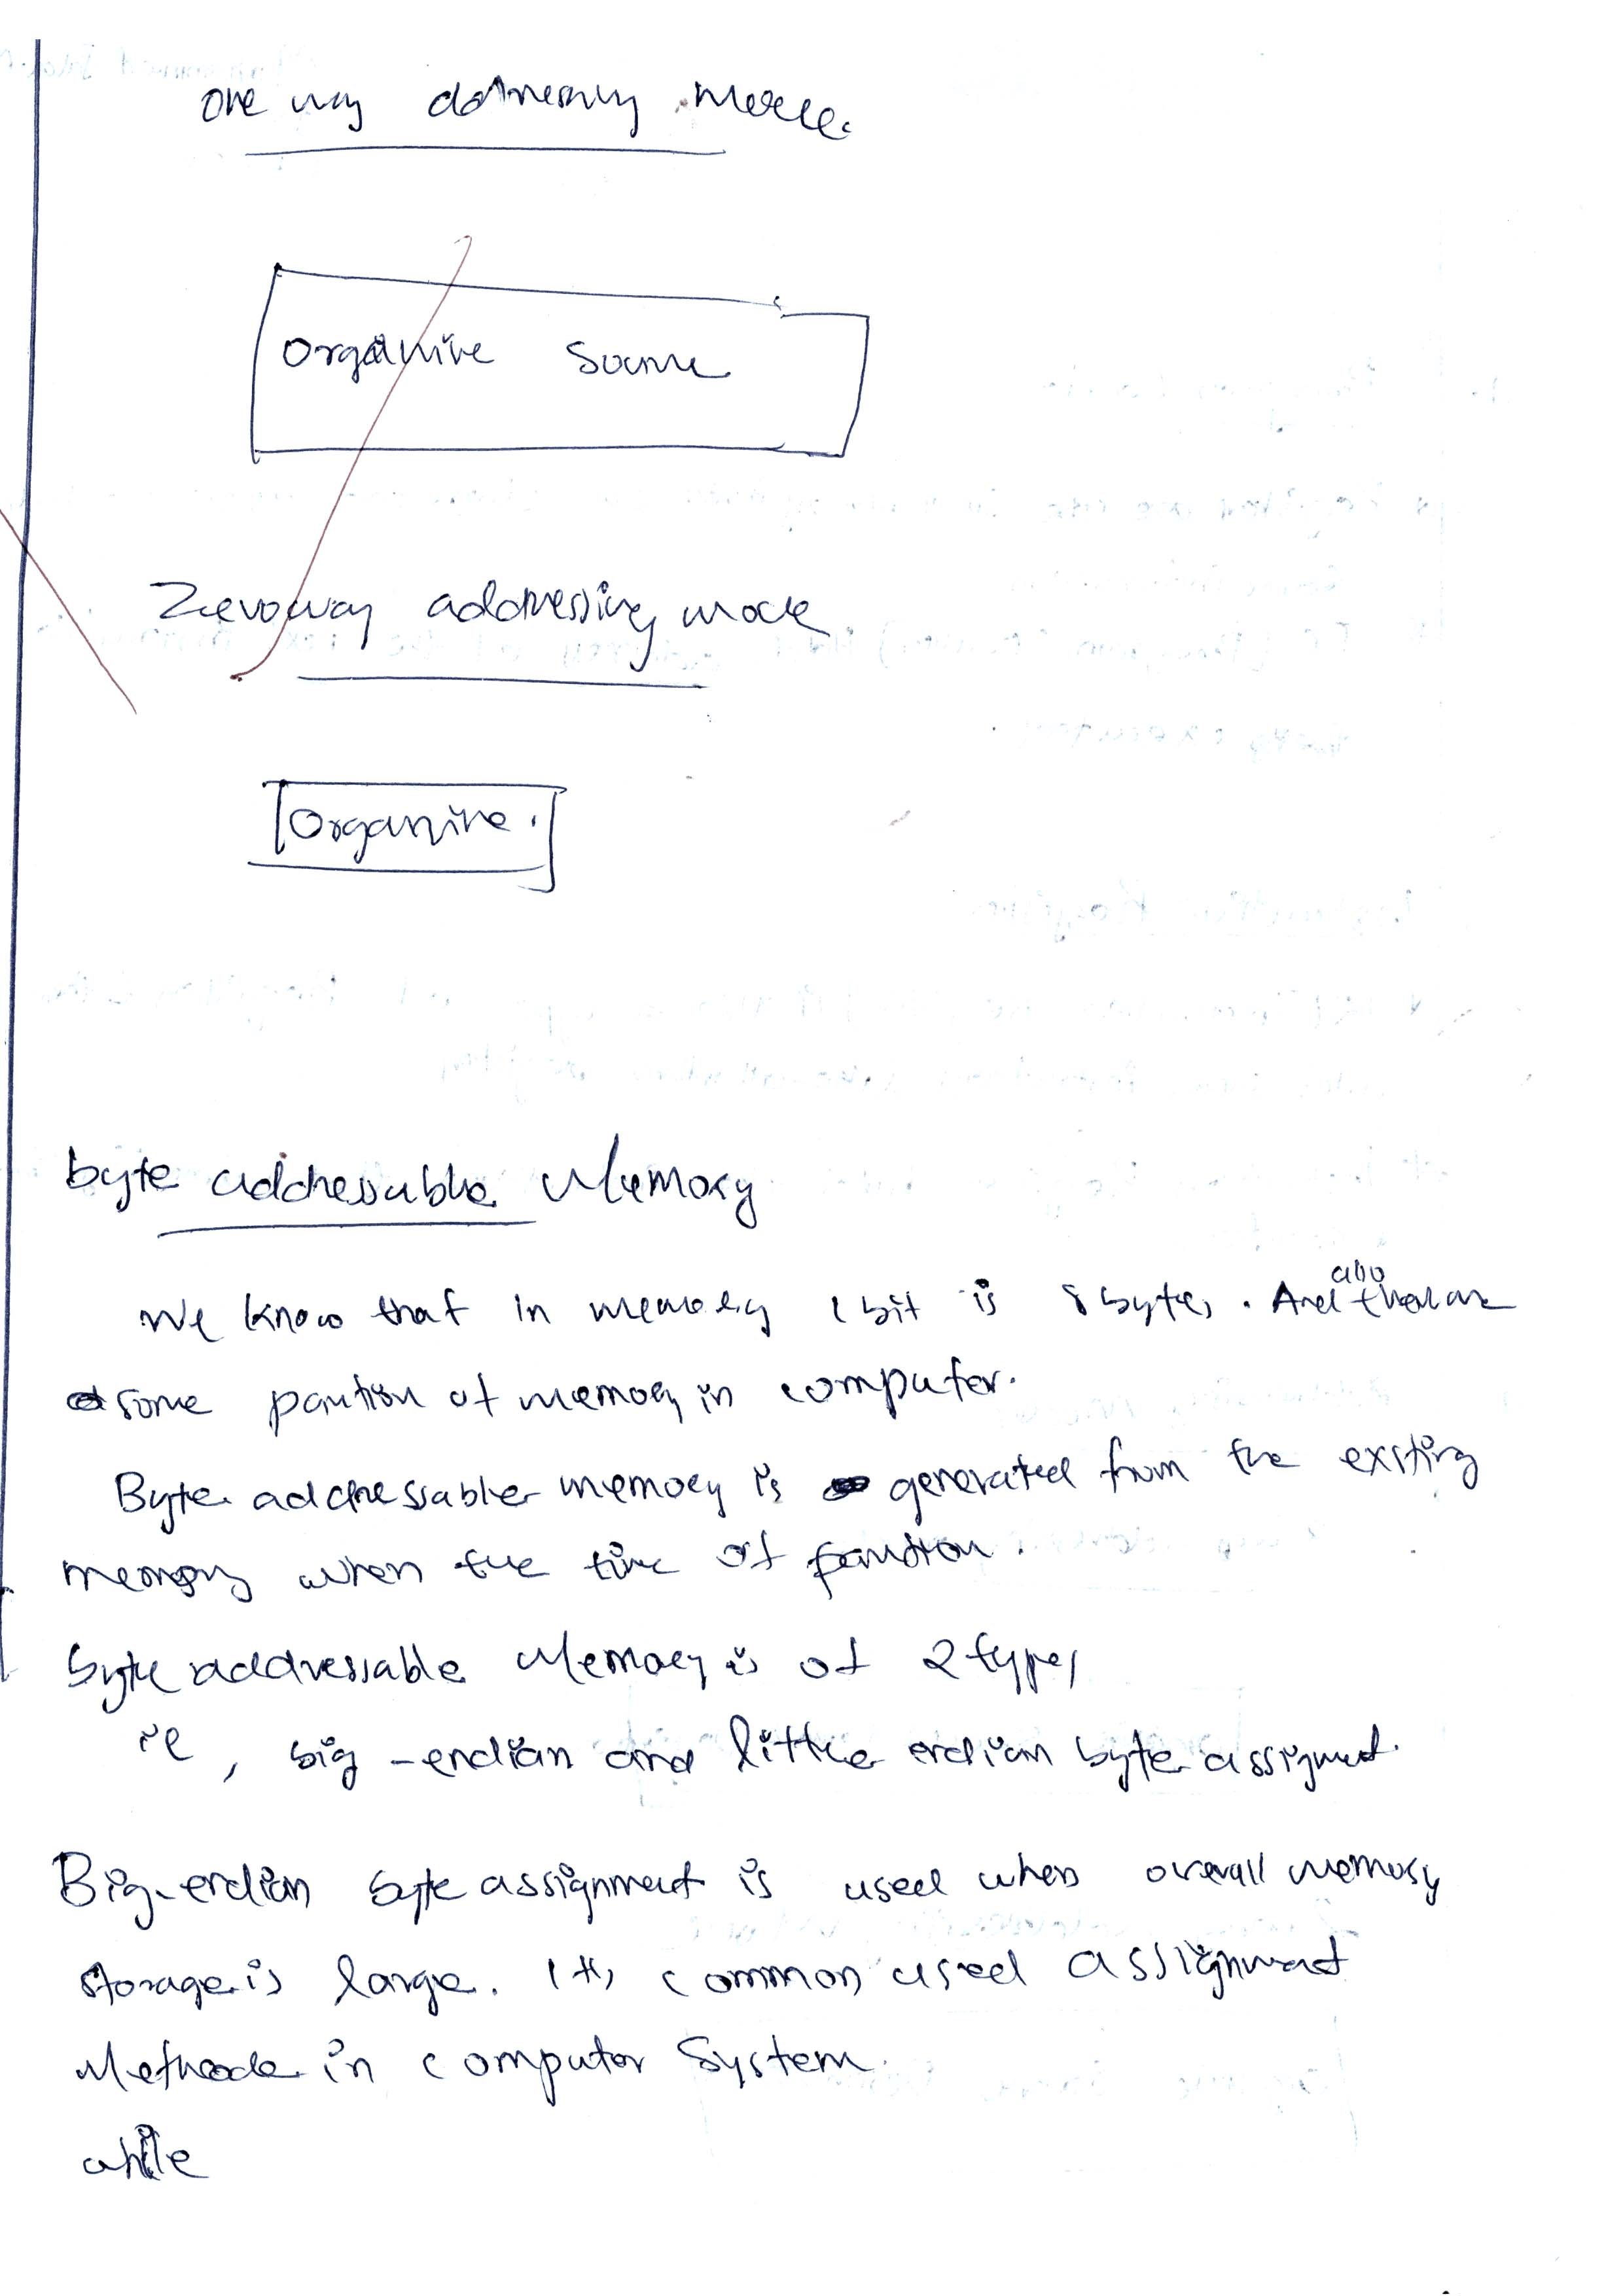 one way addressing mode.
Organire Source
Zeroway addressing mode
Organire.
byte addressable Memory
We know that in memory 1 bit is 8 bytes. And also there are
some partion of memory in computer.
Byte addressable memory is generated from the existing
memory when the time of partion.
byte addressable Memory is of 2 types
ie, big-endian and little endian byte assigment.
Big-endian byte assignment is used when overall memory
storage is large. Its common used assignment
Methode in computer System.
while